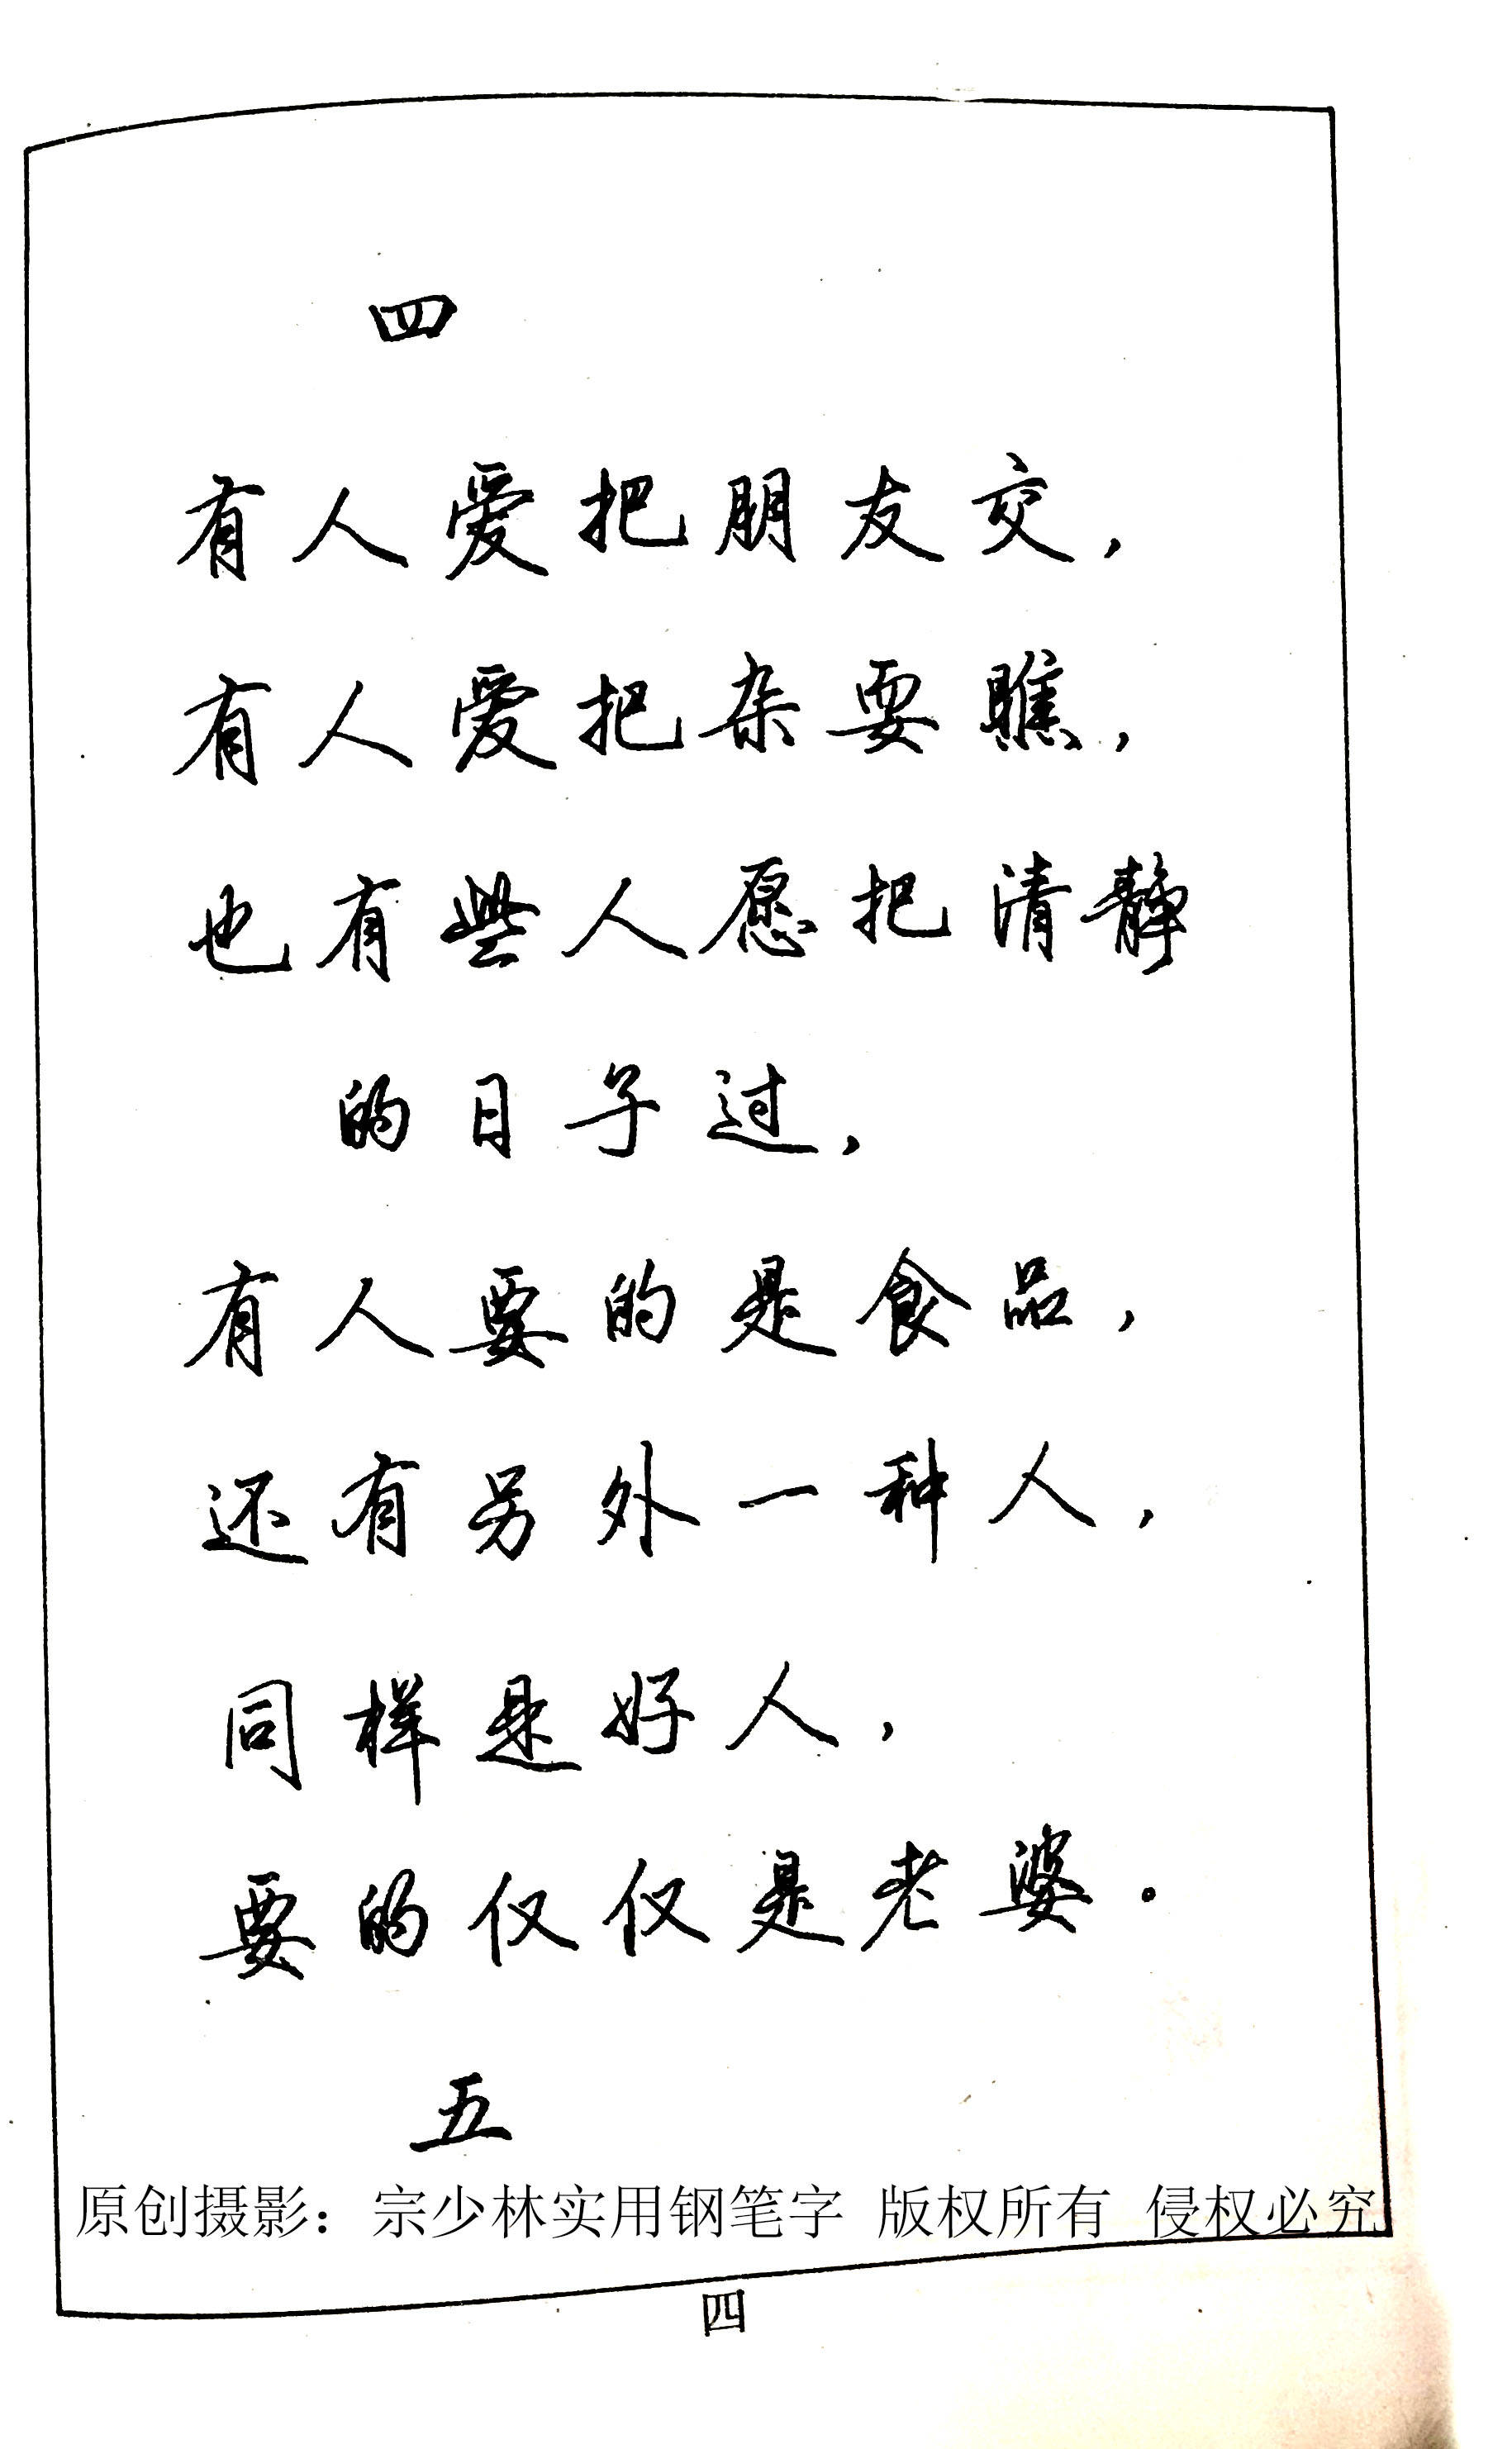 四
有人爱把朋友交，
有人爱把杂耍瞧，
也有些人愿把清静
的日子过，
有人要的是食品，
还有另外一种人，
同样是好人，
要的仅仅是老婆。
五
原创摄影：宗少林实用钢笔字 版权所有 侵权必究
四